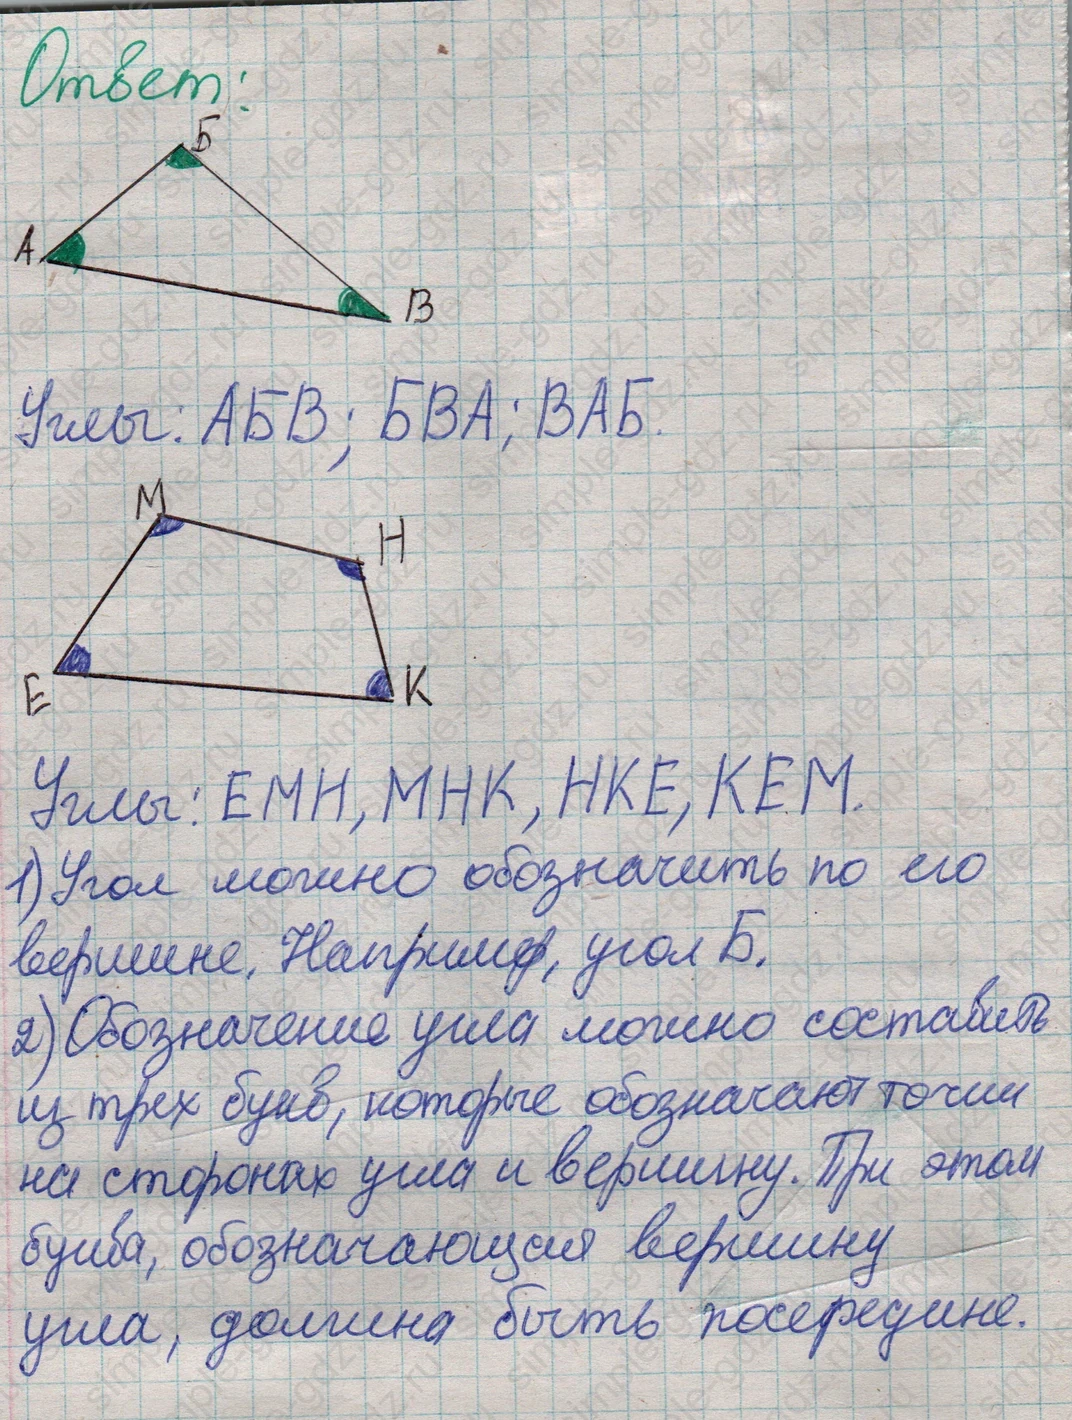 Ответ:
Б
А
В
Углы: АБВ; БВА; ВАБ.
М
Н
Е
К
Углы: ЕМН, МНК, НКЕ, КЕМ.
1) Угол можно обозначить по его
вершине. Например, угол Б.
2) Обозначение угла можно составить
из трех букв, которые обозначают точки
на сторонах угла и вершину. При этом
буква, обозначающая вершину
угла, должна быть посередине.
simple-gdz.ru